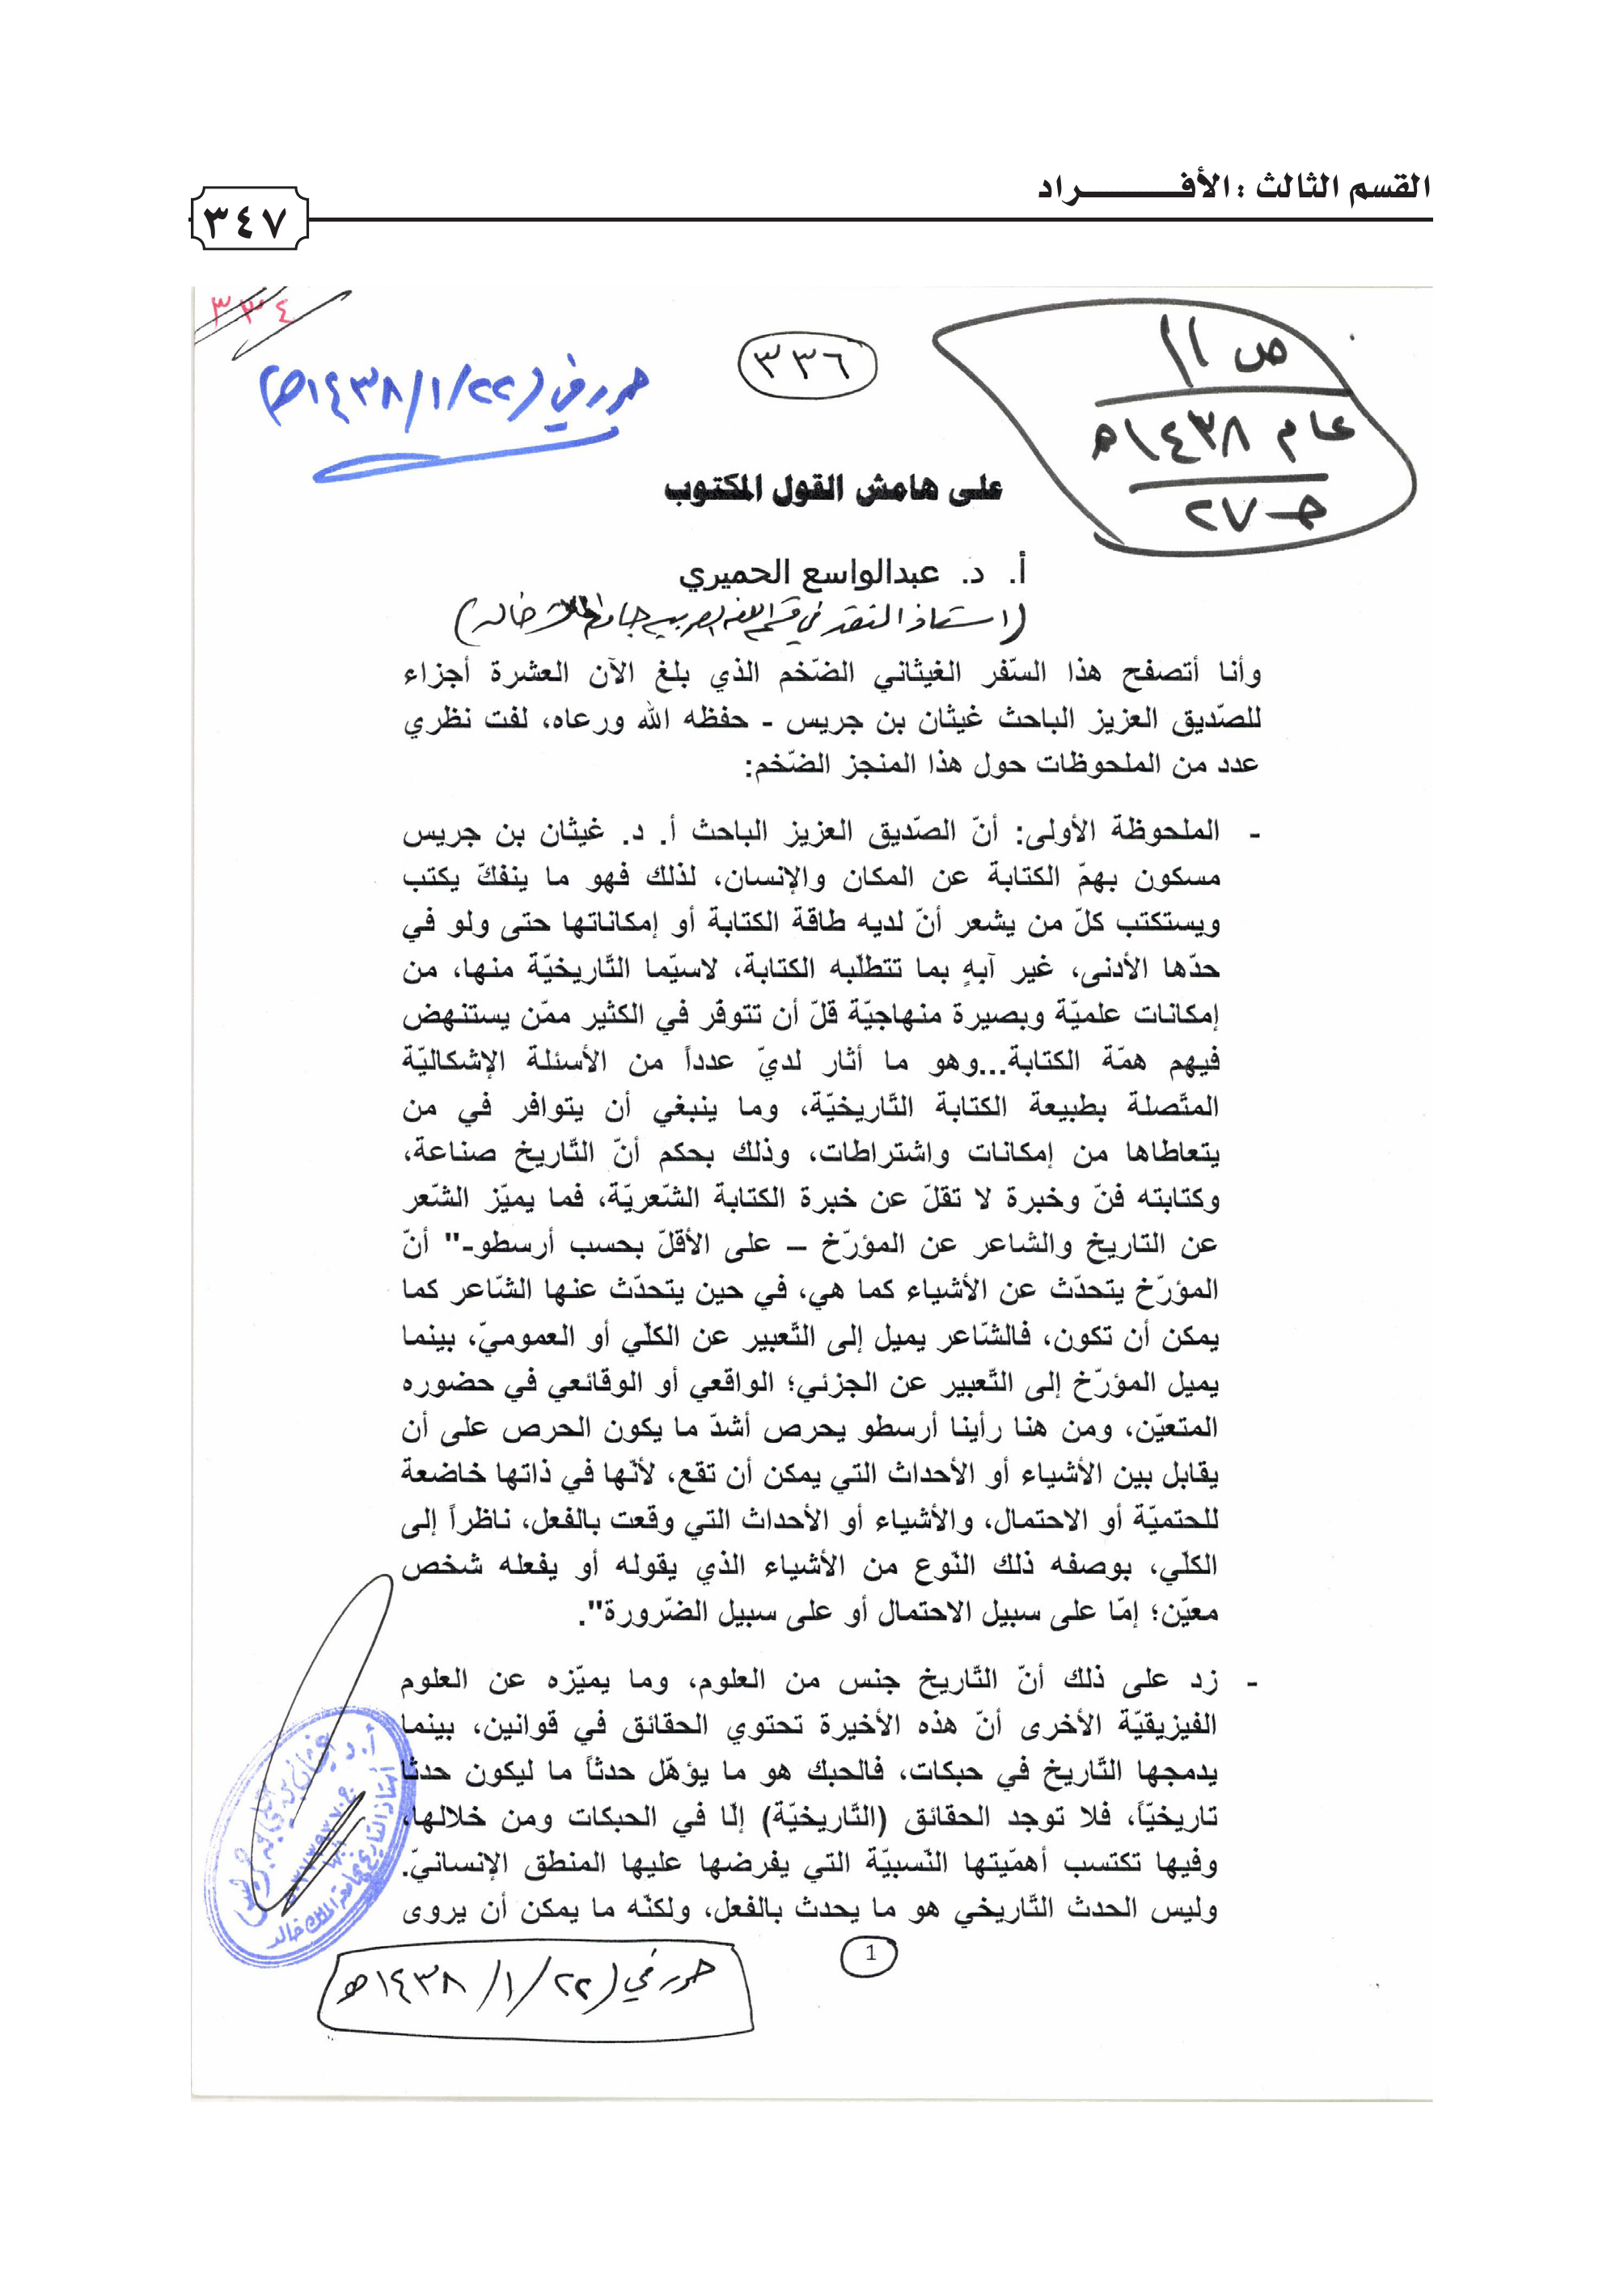 القسم الثالث : الأفـــــــــراد
٣٤٧
٣٣٤
٣٣٦
ص ١١
عام ١٤٣٨هـ
جـ ٢٧
حرر في (١٤٣٨/١/٢٢هـ)
على هامش القول المكتوب
أ. د. عبدالواسع الحميري
(استاذ النقد في قسم اللغة العربية جامعة الملك خالد)
وأنا أتصفح هذا السّفر الغيثاني الضّخم الذي بلغ الآن العشرة أجزاء
للصّديق العزيز الباحث غيثان بن جريس - حفظه الله ورعاه، لفت نظري
عدد من الملحوظات حول هذا المنجز الضّخم:
- الملحوظة الأولى: أنّ الصّديق العزيز الباحث أ. د. غيثان بن جريس
مسكون بهمّ الكتابة عن المكان والإنسان، لذلك فهو ما ينفكّ يكتب
ويستكتب كلّ من يشعر أنّ لديه طاقة الكتابة أو إمكاناتها حتى ولو في
حدّها الأدنى، غير آبهٍ بما تتطلّبه الكتابة، لاسيّما التّاريخيّة منها، من
إمكانات علميّة وبصيرة منهاجيّة قلّ أن تتوفّر في الكثير ممّن يستنهض
فيهم همّة الكتابة...وهو ما أثار لديّ عدداً من الأسئلة الإشكاليّة
المتّصلة بطبيعة الكتابة التّاريخيّة، وما ينبغي أن يتوافر في من
يتعاطاها من إمكانات واشتراطات، وذلك بحكم أنّ التّاريخ صناعة،
وكتابته فنّ وخبرة لا تقلّ عن خبرة الكتابة الشّعريّة، فما يميّز الشّعر
عن التاريخ والشاعر عن المؤرّخ – على الأقلّ بحسب أرسطو-" أنّ
المؤرّخ يتحدّث عن الأشياء كما هي، في حين يتحدّث عنها الشّاعر كما
يمكن أن تكون، فالشّاعر يميل إلى التّعبير عن الكلّي أو العموميّ، بينما
يميل المؤرّخ إلى التّعبير عن الجزئي؛ الواقعي أو الوقائعي في حضوره
المتعيّن، ومن هنا رأينا أرسطو يحرص أشدّ ما يكون الحرص على أن
يقابل بين الأشياء أو الأحداث التي يمكن أن تقع، لأنّها في ذاتها خاضعة
للحتميّة أو الاحتمال، والأشياء أو الأحداث التي وقعت بالفعل، ناظراً إلى
الكلّي، بوصفه ذلك النّوع من الأشياء الذي يقوله أو يفعله شخص
معيّن؛ إمّا على سبيل الاحتمال أو على سبيل الضّرورة".
- زد على ذلك أنّ التّاريخ جنس من العلوم، وما يميّزه عن العلوم
الفيزيقيّة الأخرى أنّ هذه الأخيرة تحتوي الحقائق في قوانين، بينما
يدمجها التّاريخ في حبكات، فالحبك هو ما يؤهّل حدثاً ما ليكون حدثا
تاريخيّاً، فلا توجد الحقائق (التّاريخيّة) إلّا في الحبكات ومن خلالها،
وفيها تكتسب أهمّيتها النّسبيّة التي يفرضها عليها المنطق الإنسانيّ.
وليس الحدث التّاريخي هو ما يحدث بالفعل، ولكنّه ما يمكن أن يروى
1
حرر في (١٤٣٨/١/٢٢هـ
أستاذ التاريخ بجامعة الملك خالد